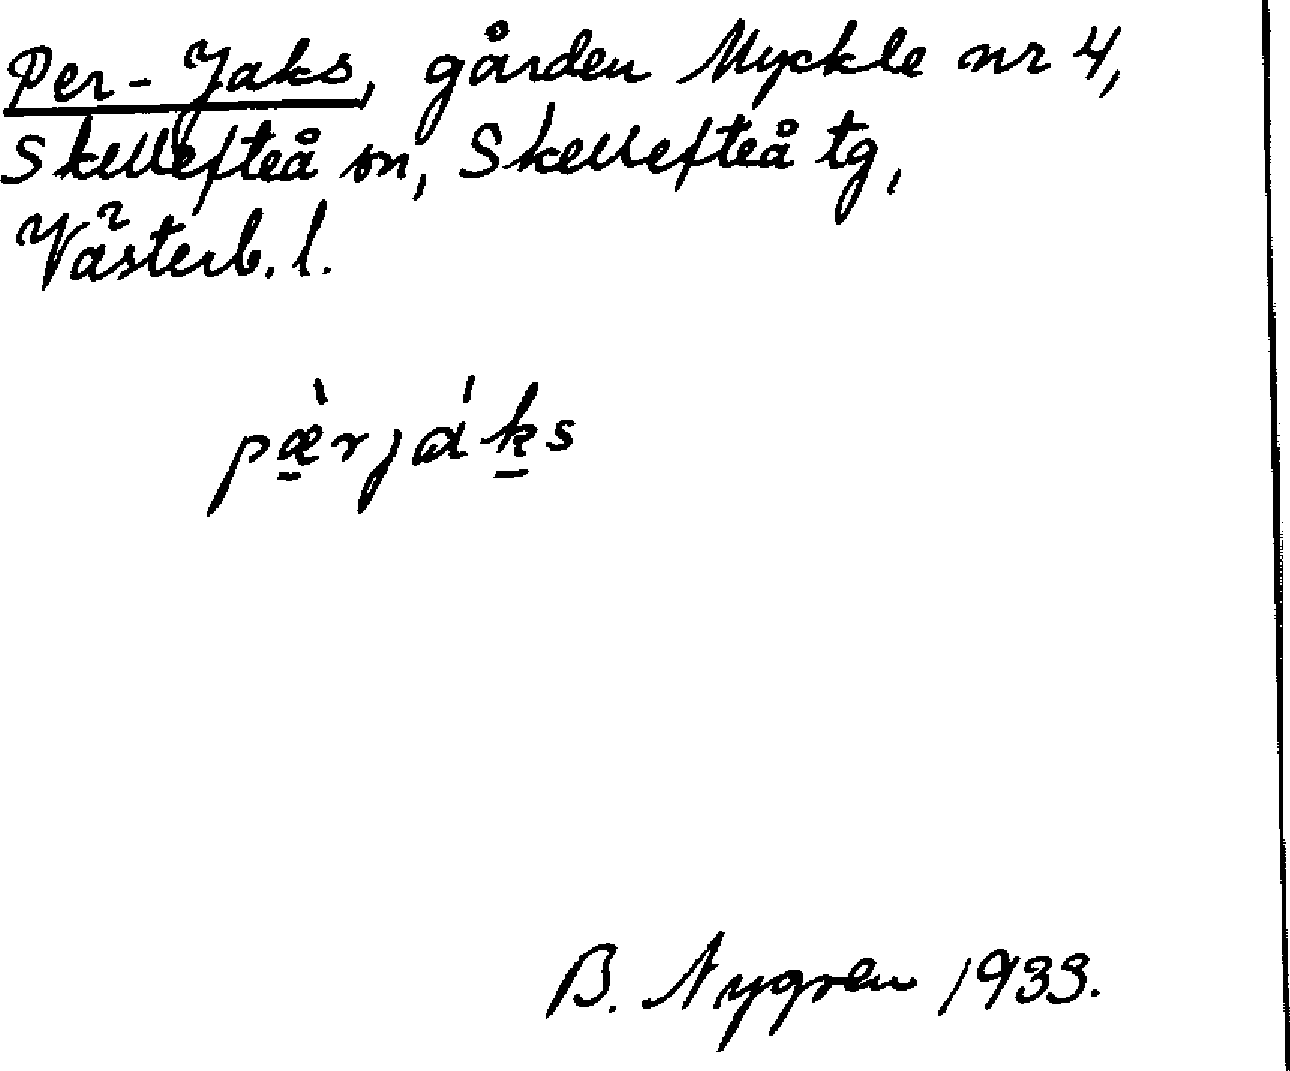 Per-Jaks, gården Myckle nr 4,
Skellefteå sn, Skellefteå tg,
Västerb. l.
pæ̠̀rjɑ́k̠s
B. Nygren 1933.